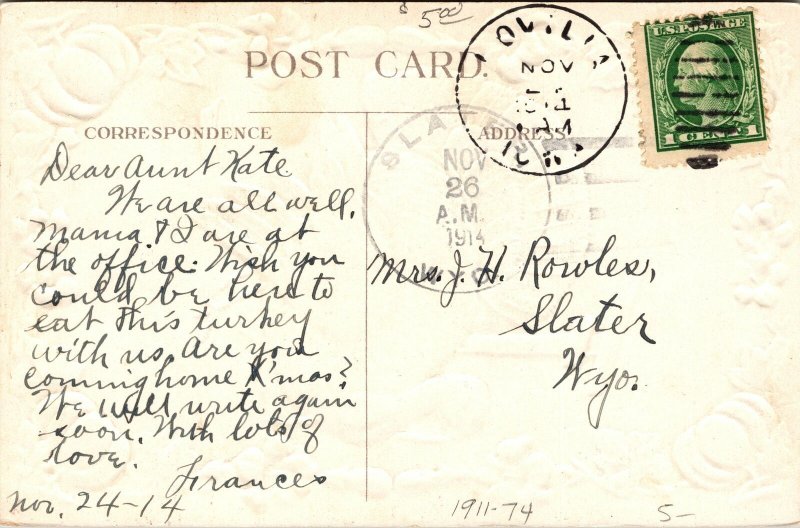 $ 5.00
POST CARD.
CORRESPONDENCE
ADDRESS
U.S. POSTAGE
1 CENT 1
LOVILIA
NOV
IOWA
SLATER
NOV
26
A.M.
1914
WYO
Dear Aunt Kate
We are all well.
Mama & I are at
the office. Wish you
could be here to
eat this turkey
with us. Are you
coming home X'mas?
We will write again
soon. With lots of
love.
Frances
Nov. 24-14
Mrs. J. H. Rowles,
Slater
Wyo.
1911-74
5-